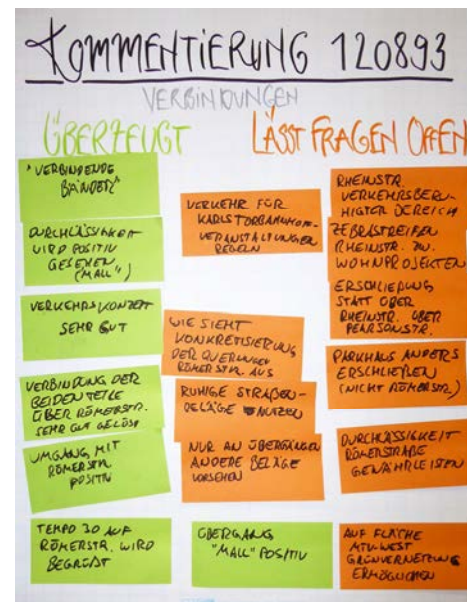 KOMMENTIERUNG 120893
VERBINDUNGEN
ÜBERZEUGT
LÄSST FRAGEN OFFEN
"VERBINDENDE
BÄNDER"
DURCHLÄSSIGKEIT
WIRD POSITIV
GESEHEN
("MALL")
VERKEHRSKONZEPT
SEHR GUT
VERBINDUNG DER
BEIDEN TEILE
ÜBER RÖMERSTR.
SEHR GUT GELÖST
UMGANG MIT
RÖMERSTR.
POSITIV
TEMPO 30 AUF
RÖMERSTR. WIRD
BEGRÜßT
VERKEHR FÜR
KARLSTORBAHNHOF-
VERANSTALTUNGEN
REGELN
WIE SIEHT
KONKRETISIERUNG
DER QUERUNGEN
RÖMERSTR. AUS
RUHIGE STRAßEN-
BELÄGE NUTZEN
NUR AN ÜBERGÄNGEN
ANDERE BELÄGE
VORSEHEN
ÜBERGANG
"MALL" POSITIV
RHEINSTR.
VERKEHRSBERU-
HIGTER BEREICH
ZEBRASTREIFEN
RHEINSTR. ZU
WOHNPROJEKTEN
ERSCHLIEßUNG
STATT ÜBER
RHEINSTR. ÜBER
PEARSONSTR.
PARKHAUS ANDERS
ERSCHLIEßEN
(NICHT RÖMERSTR.)
DURCHLÄSSIGKEIT
RÖMERSTRAßE
GEWÄHRLEISTEN
AUF FLÄCHE
MTV-WEST
GRÜNVERNETZUNG
ERMÖGLICHEN